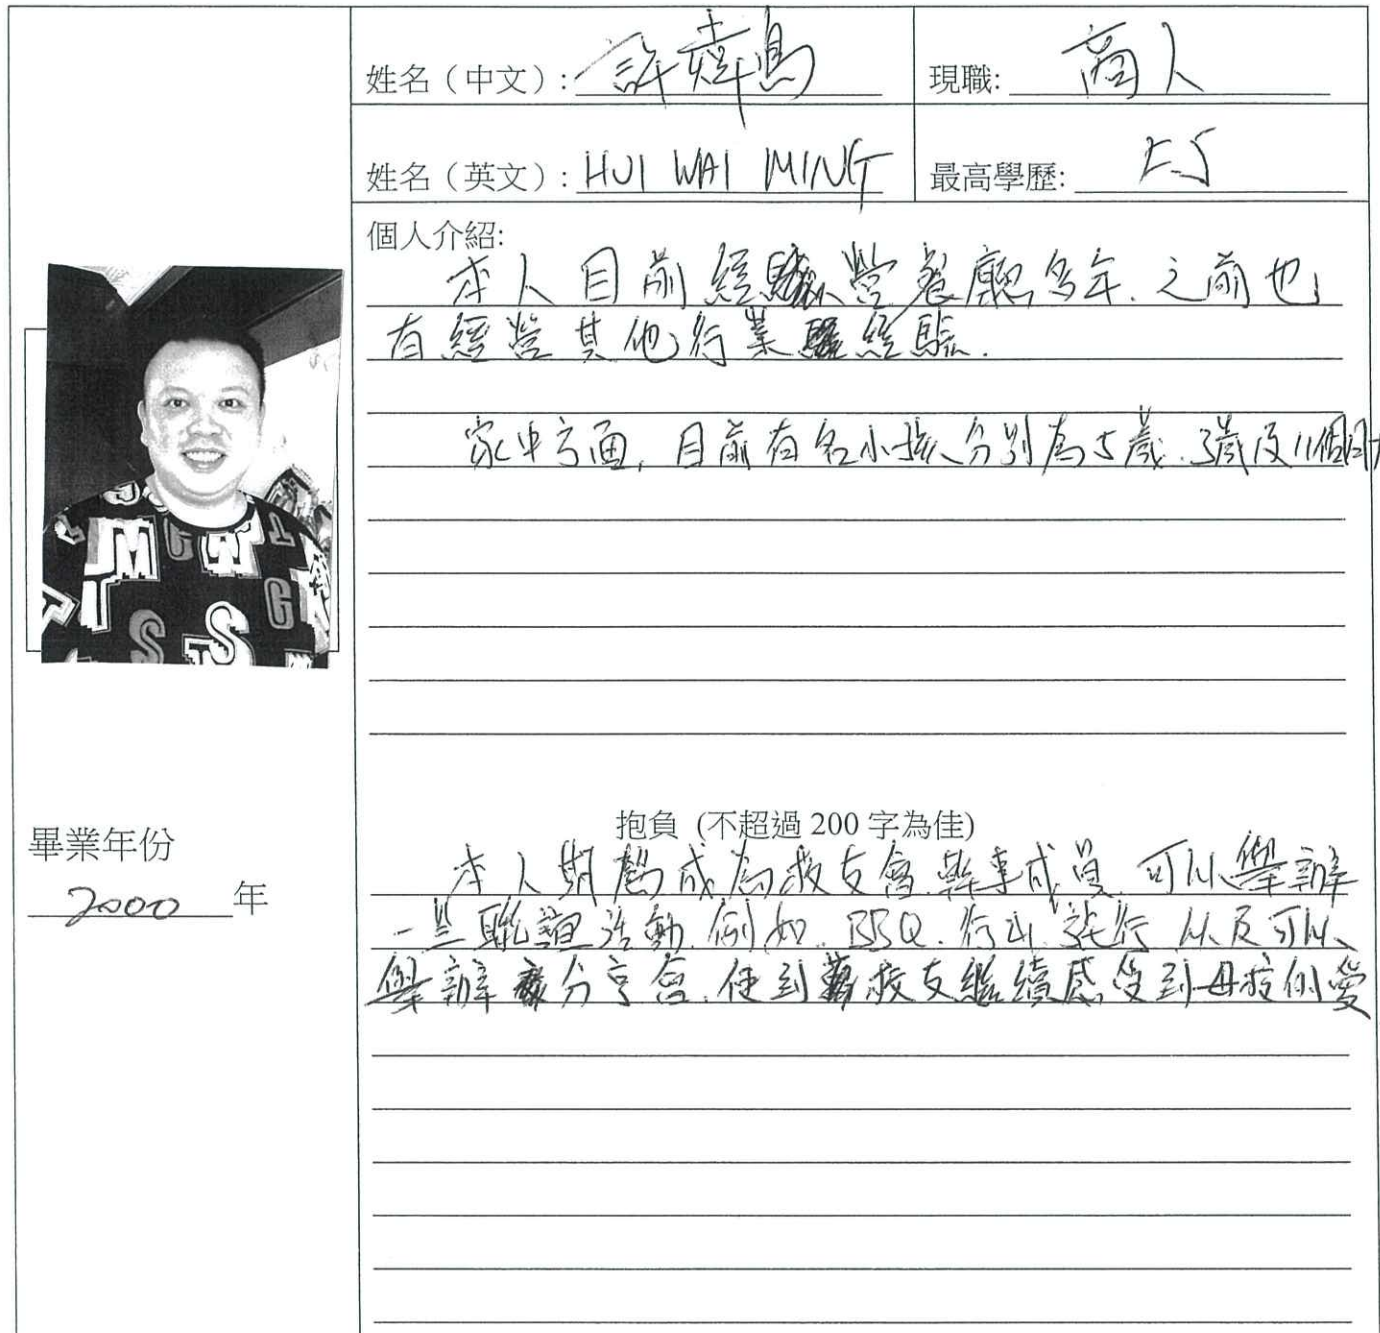 姓名（中文）: 許煒
現職: 商人
姓名（英文）: HUI WAI MING
最高學歷: F.5
個人介紹:
本人目前經營餐廳多年. 之前也
有經營其他行業經驗.
家中方面, 目前有名小孩分別為5歲. 3歲及11個月大
畢業年份
2000 年
抱負 (不超過 200 字為佳)
本人期為成為校友會幹事成員. 可以舉辦
一些聯誼活動. 例如. BBQ. 行山. 旅行 以及可以
舉辦分享會. 使到舊校友繼續感受到母校的愛